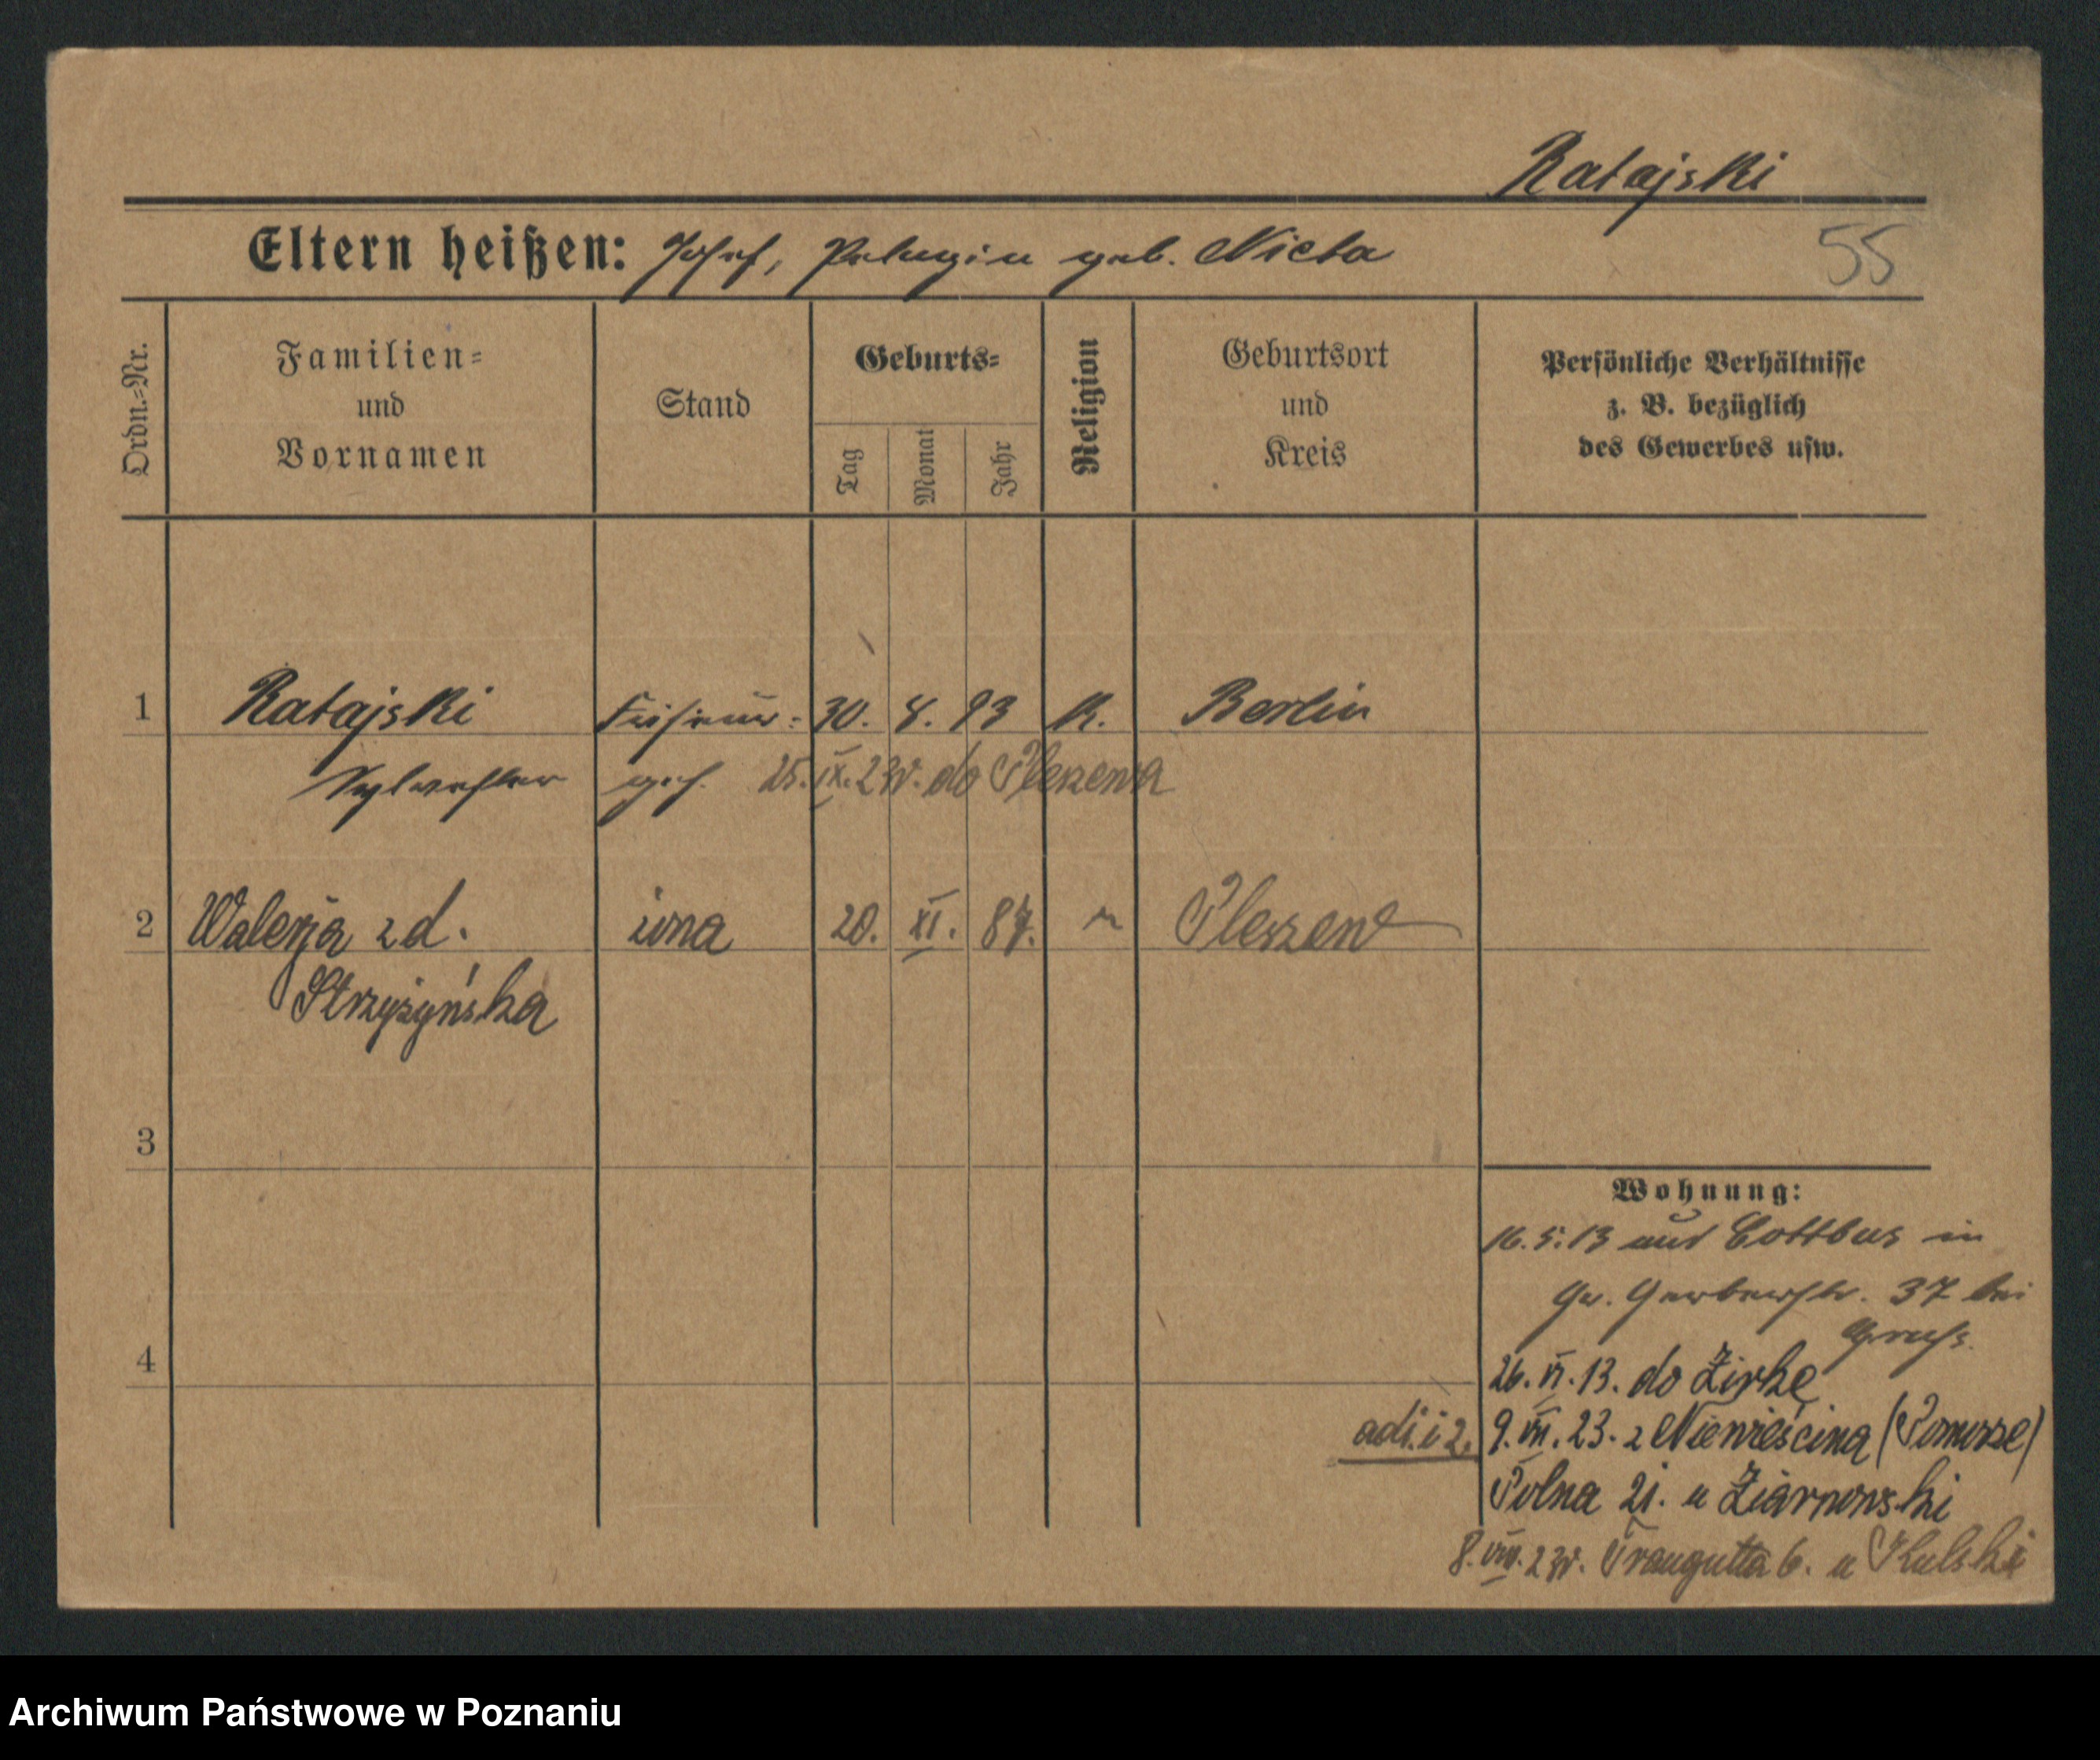 Ratajski
55
Eltern heißen: Josef, Pelagia geb. Nicka
Ordn.=Nr.
Familien=
und
Vornamen
Stand
Geburts=
Tag
Monat
Jahr
Religion
Geburtsort
und
Kreis
Persönliche Verhältnisse
z. B. bezüglich
des Gewerbes usw.
1 Ratajski Friseur= 30. 8. 93 K. Berlin
Sylvester geh. 25. IX. 23r. do Pleszewa
2 Walerja z d. żona 20. XI. 87. Pleszew
Strzyżyńska
3
4
Wohnung:
16. 5. 13 aus Cottbus in
Gr. Gerberstr. 37 bei
26. VI. 13. do Zirke
ad 1. i 2. 9. VII. 23. z Niewieścina (Pomorze)
Polna 21. u Ziarnowski
8. VIII. 23r. Traugutta 6. u Kulski
Archiwum Państwowe w Poznaniu